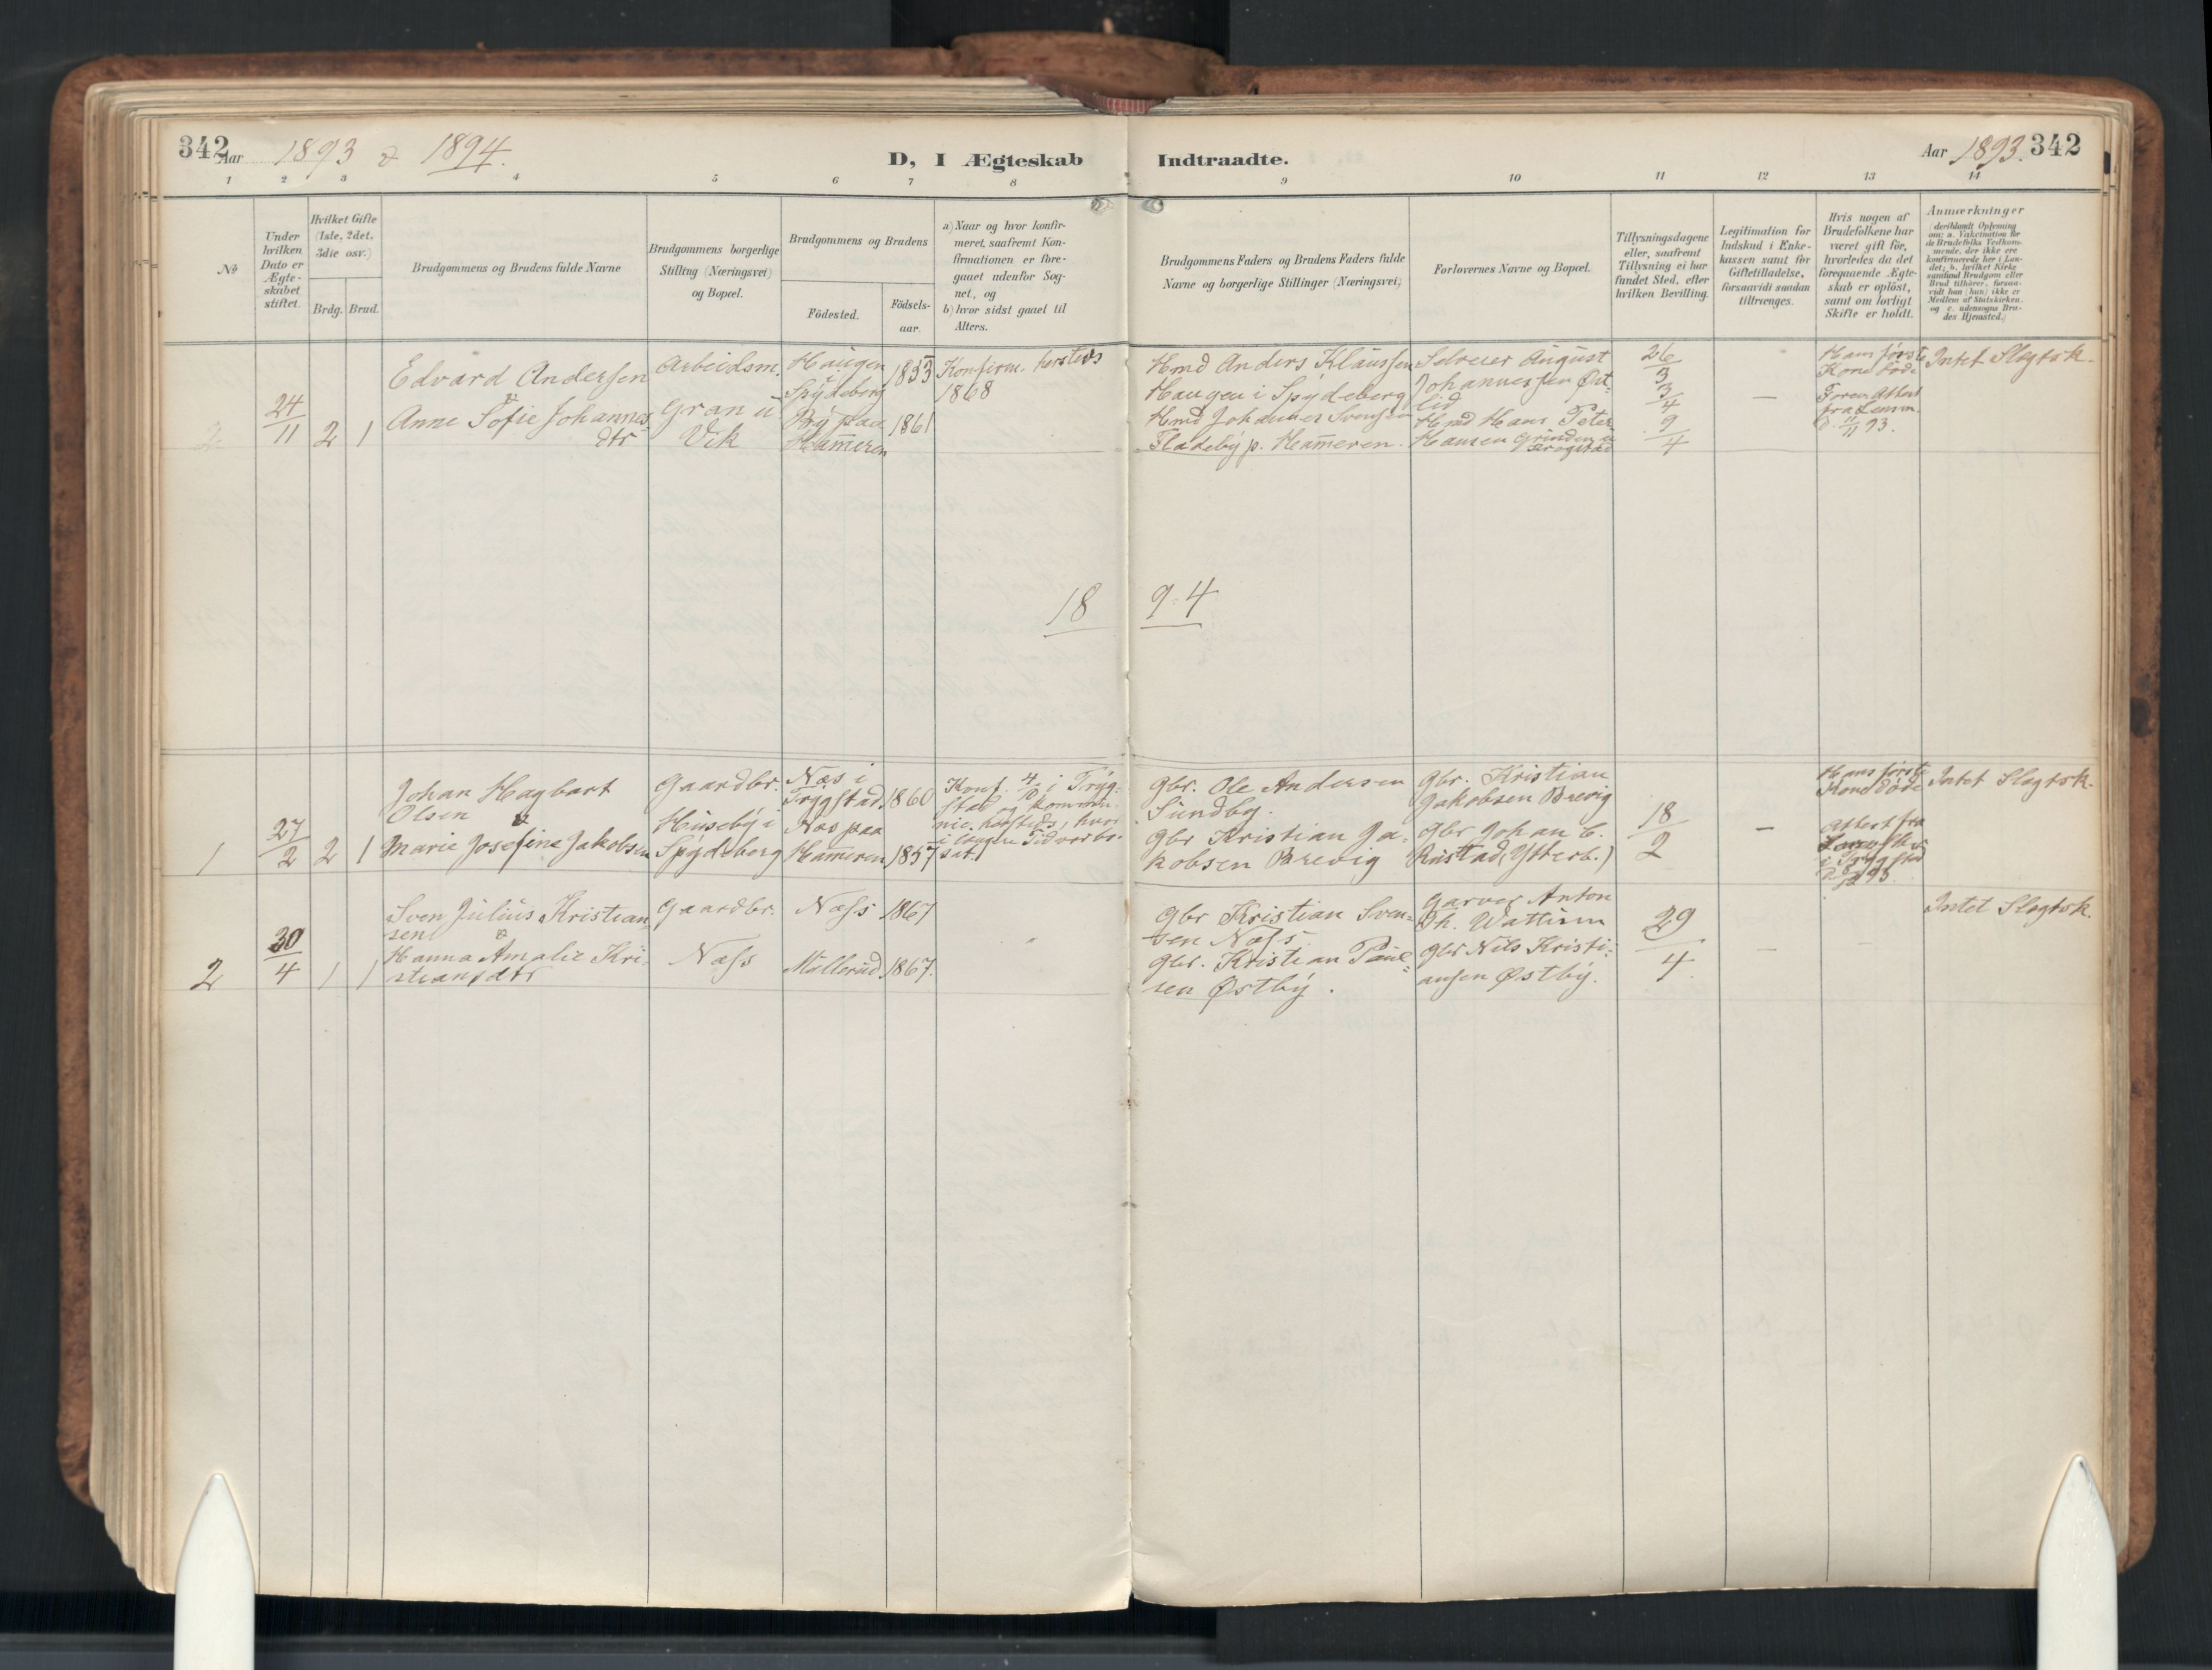 342
Aar 1893 & 1894.
D, I Ægteskab
Indtraadte.
Aar 1893. 342
1 2 3 4 5 6 7 8
9 10 11 12 13 14
No
Under
hvilken
Dato er
Ægte-
skabet
stiftet.
Hvilket Gifte
(1ste, 2det,
3die osv.)
Brdg. Brud.
Brudgommens og Brudens fulde Navne
Brudgommens borgerlige
Stilling (Næringsvei)
og Bopæl.
Brudgommens og Brudens
Födested.
Födsels-
aar.
a) Naar og hvor konfir-
meret, saafremt Kon-
firmationen er fore-
gaaet udenfor Sog-
net, og
b) hvor sidst gaaet til
Alters.
Brudgommens Faders og Brudens Faders fulde
Navne og borgerlige Stillinger (Næringsvei)
Forlovernes Navne og Bopæl.
Tillysningsdagene
eller, saafremt
Tillysning ei har
fundet Sted, efter
hvilken Bevilling.
Legitimation for
Indskud i Enke-
kassen samt for
Giftetilladelse,
forsaavidt saadan
tiltrænges.
Hvis nogen af
Brudefolkene har
været gift för,
hvorledes da det
foregaaende Ægte-
skab er oplöst,
samt om lovligt
Skifte er holdt.
Anmærkninger
(deriblandt Oplysning
om: a. Vaksination for
de Brudefolks Vedkom-
mende, der ikke ere
konfirmerede her i Lan-
det; b. hvilket Kirke-
samfund Brudgom eller
Brud tilhörer, forsaa-
vidt han (hun) ikke er
Medlem af Statskirken,
og c. udensogns Bru-
des Hjemsted.)
2.
24
11
2 1
Edvard Andersen
&
Anne Sofie Johannes
dtr
Arbeidsm.
Gran ü
Vik
Haugen
i
Spydeberg
By paa
Hameren
1853
1861
Konfirm. hersteds
1868
Hmd Anders Klaussen
Haugen i Spydeberg
Hmd Johannes Svensen
Fladeby p. Hameren.
Selveier August
Johannessen Øst-
lid
Hmd Hans Peter
Hansen Grinden ü
26
3
3
4
9
4
—
Hans første
Kone død
Forev. Attest
fra Lensm.
11 93.
Intet Slegtsk.
18 94
1
27
2
2 1
Johan Hagbart
Olsen &
Marie Josefine Jakobsen
Gaardbr.
Huseby i
Spydeberg
Næs i
Trygstad
Næs paa
Hameren
1860
1857
Konf. 4/10 i Tryg-
stad og kommu-
nic. hersteds, hvor
i længere Tid var bo-
sat.
Gbr. Ole Andersen
Sundby.
Gbr Kristian Ja-
kobsen Brevig
Gbr. Kristian
Jakobsen Brevig
Gbr Johan C.
Rustad (Ytterb.)
18
2
—
Hans første
Kone døde
Attest fra
i Trygstad
93.
Intet Slegtsk.
2
30
4
1 1
Sven Julius Kristian-
sen &
Hanna Amalie Kri-
stiansdtr
Gaardbr.
Næss
Næss
Møllerud
1867
1867.
Gbr Kristian Sven-
sen Næss.
Gbr. Kristian Paul-
sen Østby.
Garver Anton
Th. Wattum
Gbr Nils Kristi-
ansen Østby.
29
4
—
—
Intet Slegtsk.